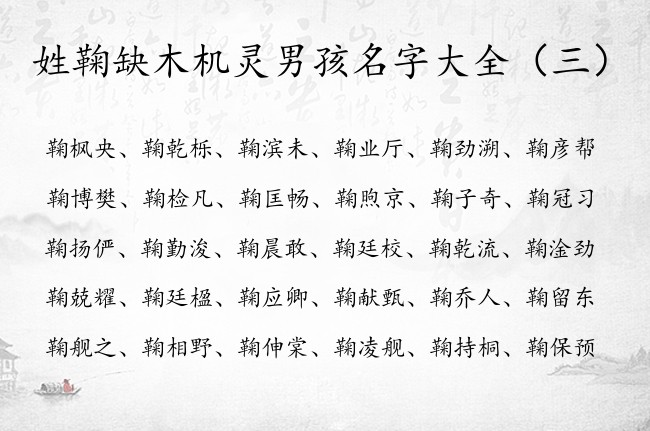 姓鞠缺木机灵男孩名字大全（三）
鞠枫央、鞠乾栎、鞠滨未、鞠业厅、鞠劲溯、鞠彦帮
鞠博樊、鞠检凡、鞠匡畅、鞠煦京、鞠子奇、鞠冠习
鞠扬俨、鞠勤浚、鞠晨敢、鞠廷校、鞠乾流、鞠淦劲
鞠兢耀、鞠廷楹、鞠应卿、鞠献甄、鞠乔人、鞠留东
鞠舰之、鞠相野、鞠伸棠、鞠凌舰、鞠持桐、鞠保预